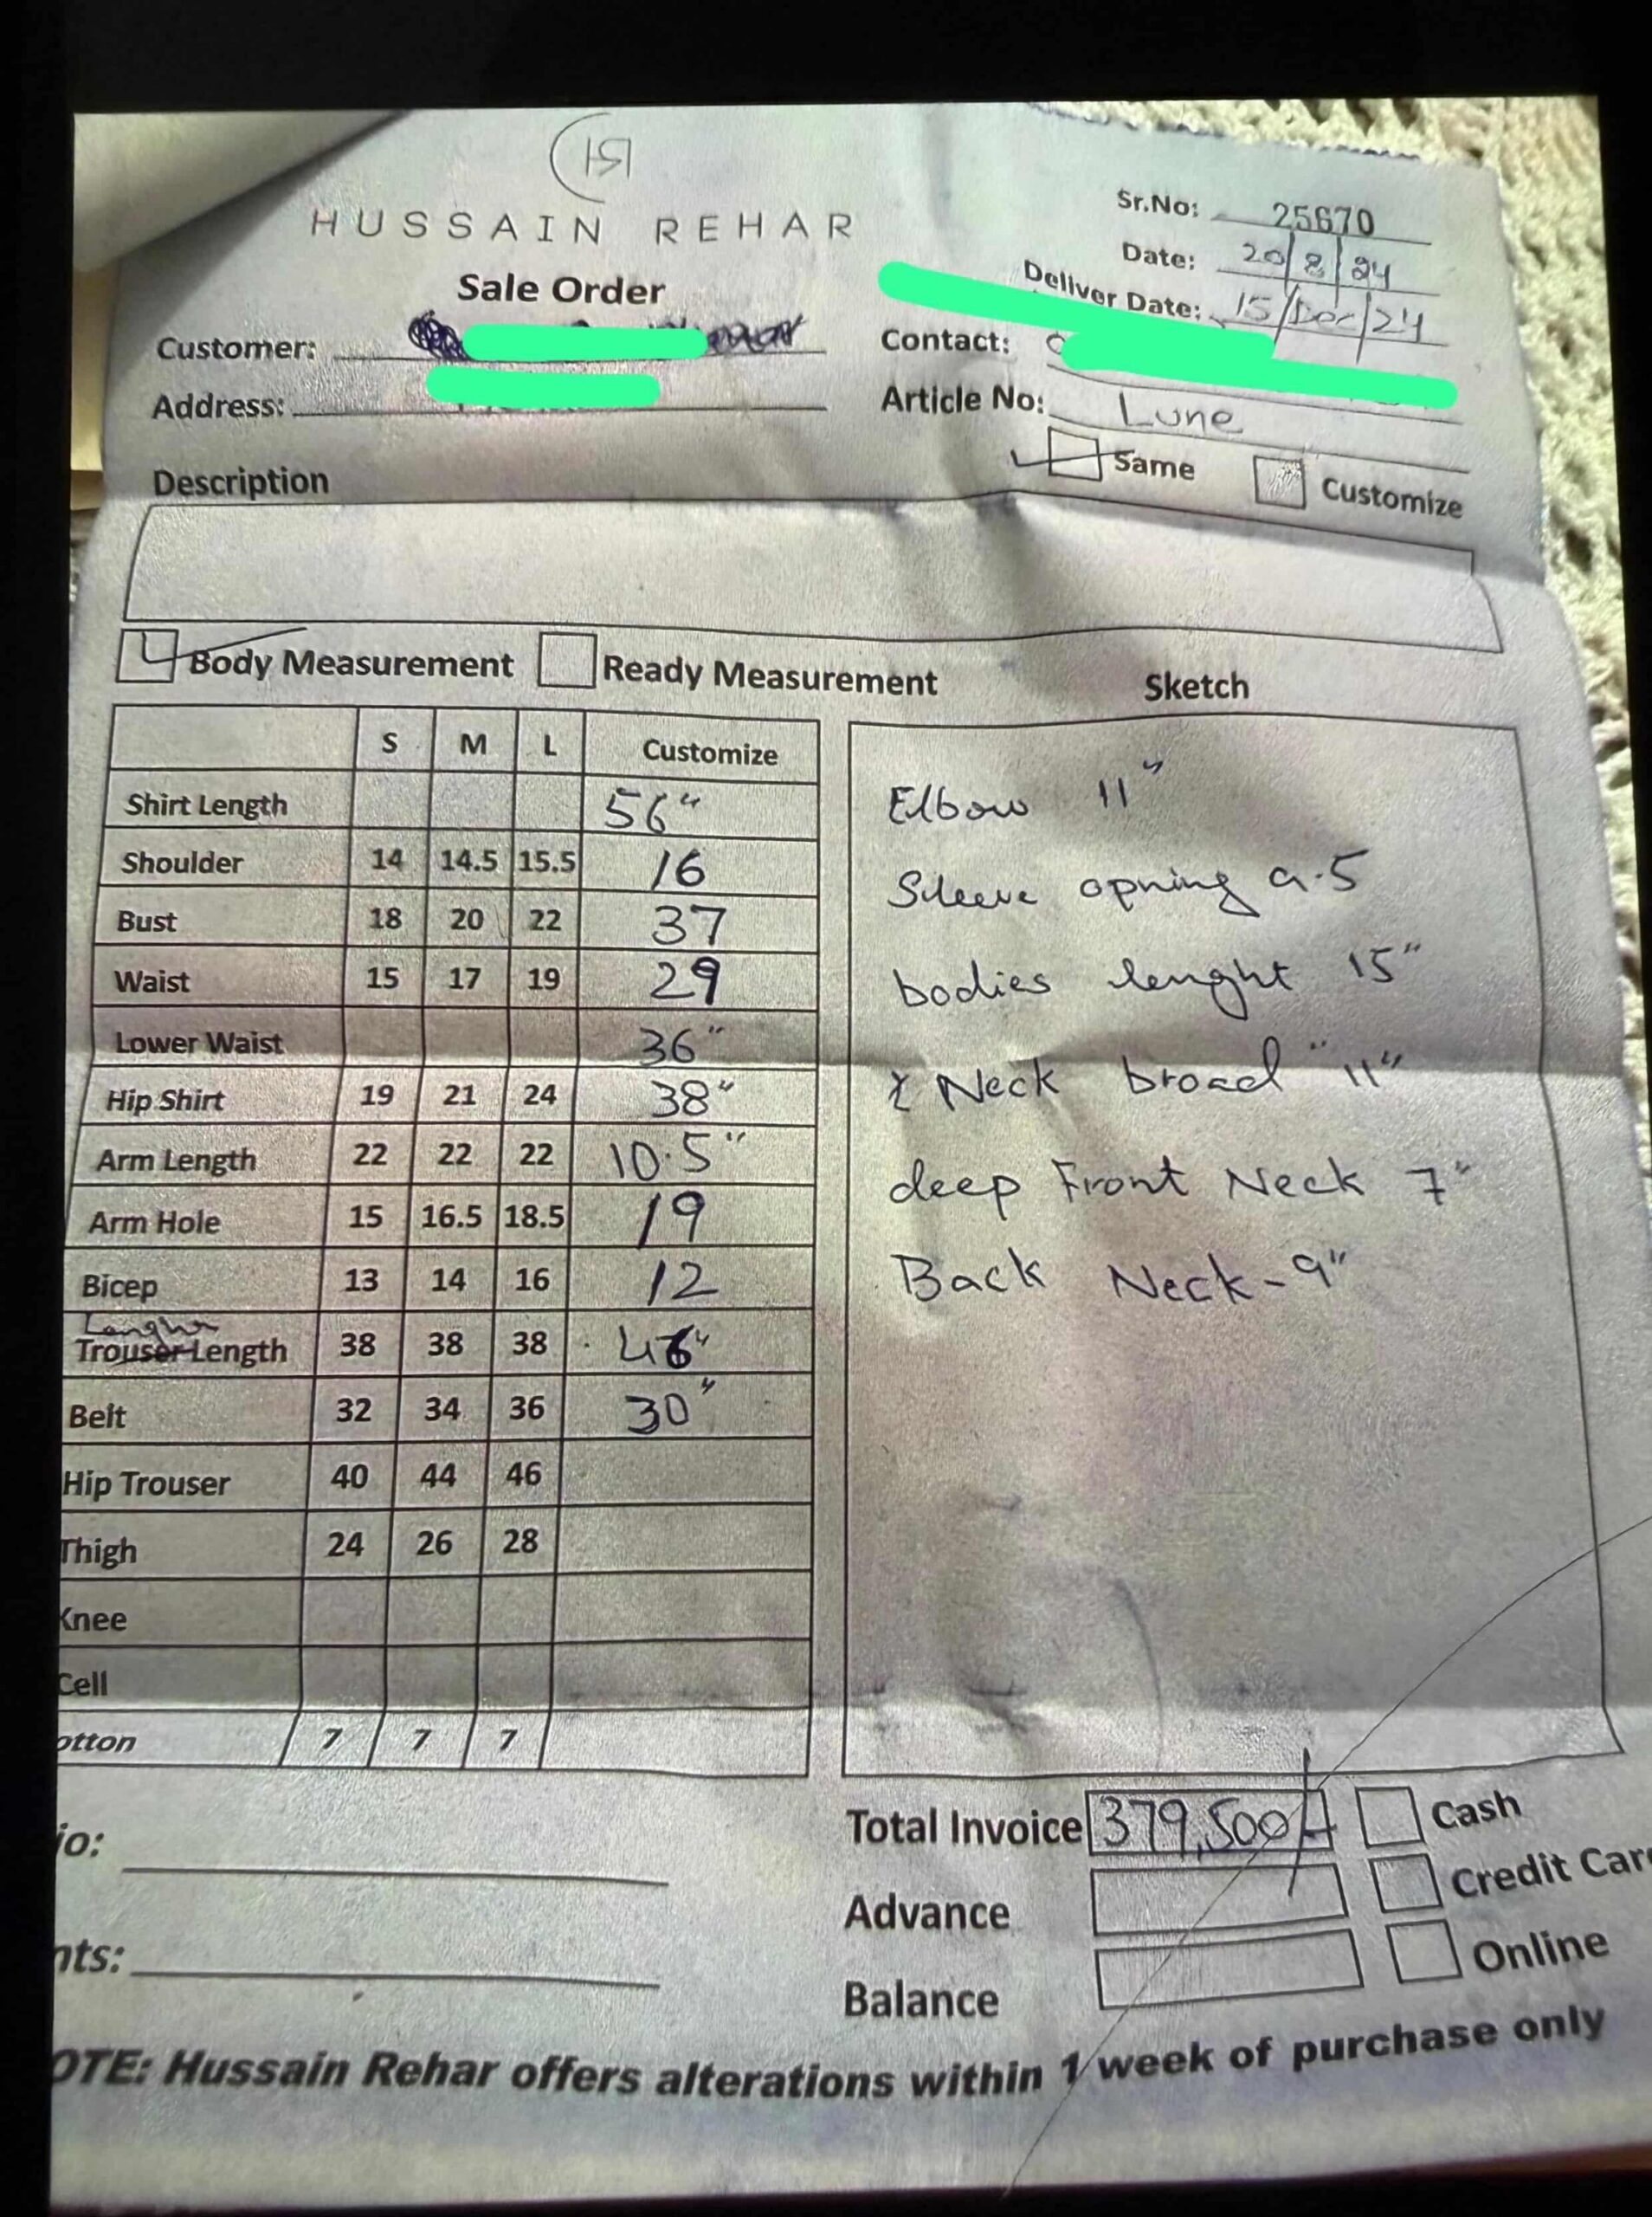 HR
HUSSAIN REHAR
Sr.No: 25670
Date: 20/8/24
Sale Order
Deliver Date: 15/Dec/24
Customer:
Contact:
Address:
Article No: Lune
Same Customize
Description
Body Measurement Ready Measurement
Sketch
S M L Customize
Shirt Length 56"
Shoulder 14 14.5 15.5 16
Bust 18 20 22 37
Waist 15 17 19 29
Lower Waist 36"
Hip Shirt 19 21 24 38"
Arm Length 22 22 22 10.5"
Arm Hole 15 16.5 18.5 19
Bicep 13 14 16 12
Trouser Length 38 38 38 46"
Belt 32 34 36 30"
Hip Trouser 40 44 46
Thigh 24 26 28
Knee
Cell
otton 7 7 7
Elbow 11"
Sleeve opning 9.5
bodies lenght 15"
Neck broad "11"
deep Front Neck 7"
Back Neck - 9"
io:
nts:
Total Invoice 379,500/- Cash
Advance Credit Car
Balance Online
OTE: Hussain Rehar offers alterations within 1 week of purchase only